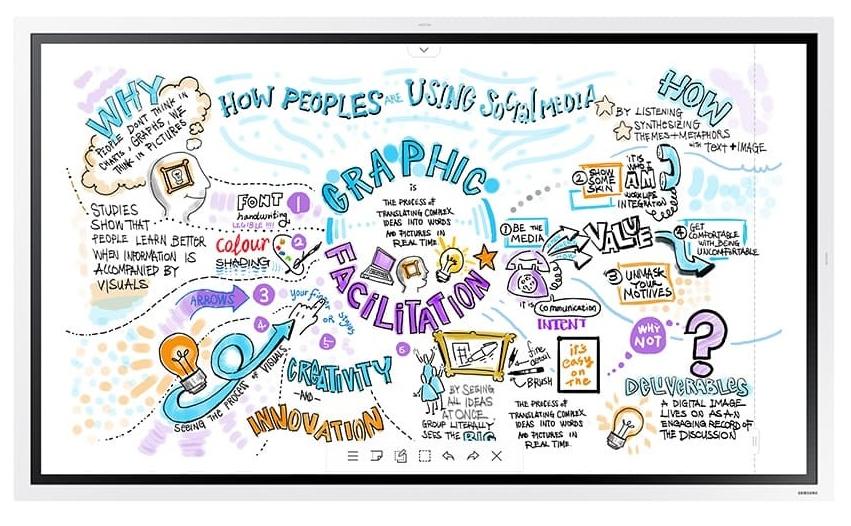 WHY
PEOPLE DON'T THINK IN
CHARTS, GRAPHS, WE
THINK IN PICTURES
HOW PEOPLES ARE USING SocIal MEDIA
HOW
BY LISTENING
SYNTHESIZING
THEMES + METAPHORS
WITH TEXT + IMAGE
GRAPHIC
IS
THE PROCESS OF
TRANSLATING COMPLEX
IDEAS INTO WORDS
AND PICTURES IN
REAL TIME
FACILITATION
STUDIES
SHOW THAT
PEOPLE LEARN BETTER
WHEN INFORMATION IS
ACCOMPANIED BY
VISUALS
FONT 1
handwriting
LEGIBLE !!!
colour 2
SHADING
ARROWS 3
your finger
OR stylus
4
5
6
SEEING THE PROCESS OF VISUALS
CREATIVITY
-AND-
INNOVATION
1 BE THE
MEDIA
2 SHOW
SOME
SKIN
IT IS
WHO I
AM
WORK LIFE
INTEGRATION
VALUE
3 UNMASK
YOUR
MOTIIVES
4 GET
COMFORTABLE
WITH BEING
UNCOMFORTABLE
it is communication
INTENT
BY SEEING
ALL IDEAS
AT ONCE
GROUP LITERALLY
SEES THE BIG
fine
detail
BRUSH
it's
easy
on
the
THE PROCESS OF
TRANSLATING COMPLEX
IDEAS INTO WORDS
AND PICTURES IN
REAL TIME.
WHY
NOT
?
DELIVERABLES
A DIGITAL IMAGE
LIVES ON AS AN
ENGAGING RECORD OF
THE DISCUSSION
SAMSUNG